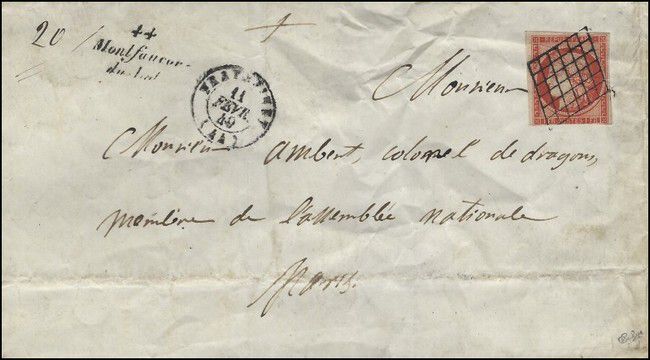 20
Montfaucon
du Lot
11
FEVR.
49
(44)
REPUB
POSTES 1 FR
Monsieur
Monsieur Ambert, colonel de dragons,
membre de l'assemblée nationale
Paris.